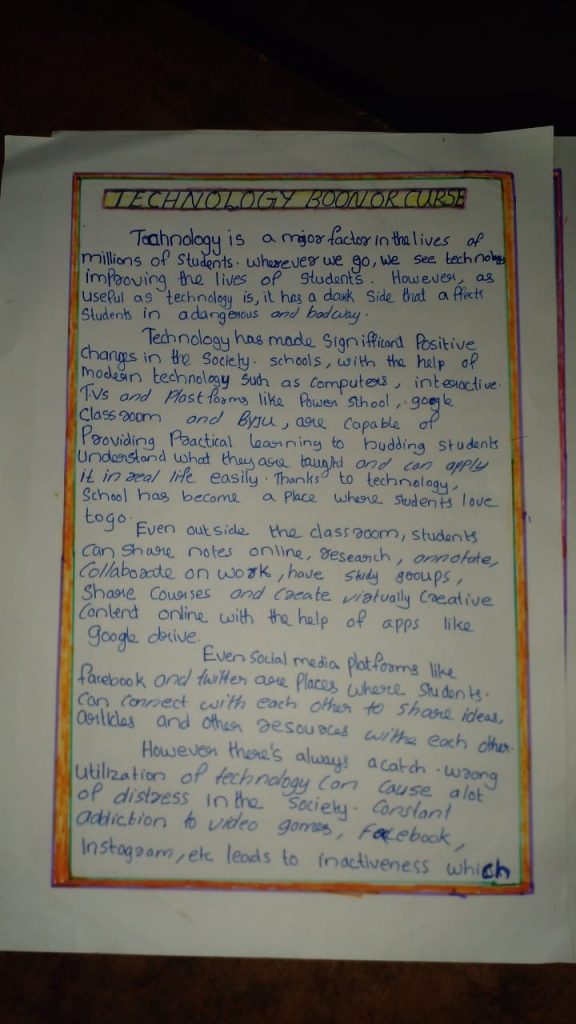 TECHNOLOGY BOON OR CURSE
Technology is a major factor in the lives of
millions of students. wherever we go, we see technology
improving the lives of students. However, as
useful as technology is, it has a dark side that affects
students in a dangerous and bad way.
Technology has made Signifficant Positive
changes in the society. schools, with the help of
modern technology such as computers, interactive.
T.Vs and Plastforms like Power School, google
Classroom and Byju, are capable of
Providing Practical learning to budding students
Understand what they are taught and can apply
it in real life easily. Thanks to technology,
School has become a Place where students love
to go.
Even outside the classroom, students
can share notes online, research, annotate,
Collaborate on work, have study gooups,
Share Courses and create virtually Creative
Content online with the help of apps like
google drive.
Even social media platforms like
facebook and twitter are places where students.
Can connect with each other to share ideas,
articles and other resources withe each other.
However there's always a catch. wrong
utilization of technology can cause a lot
of distress in the society. Constant
addiction to video games, Facebook,
Instagram, etc leads to inactiveness which